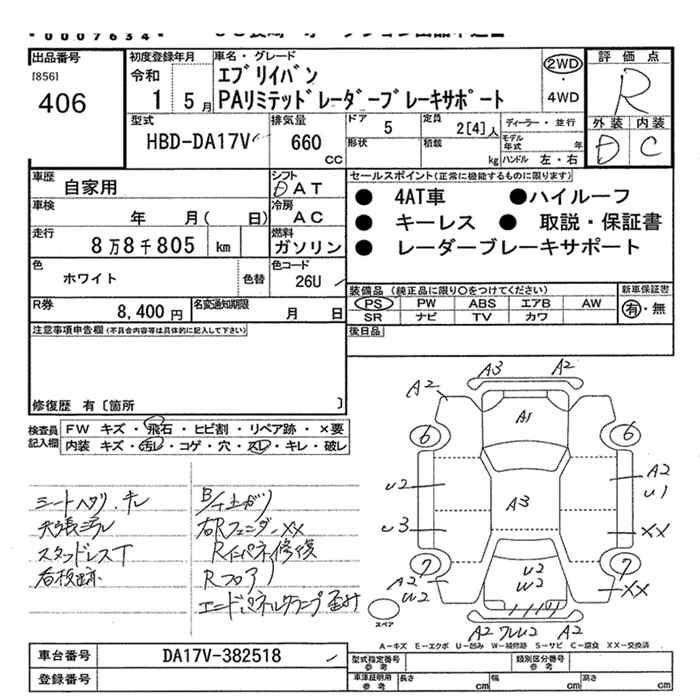 *0007634*
出品番号
[856]
406
初度登録年月
令和
1 5月
車名・グレード
エブリイバン
PAリミテッドレーダーブレーキサポート
2WD
・
4WD
評価点
R
外装 内装
D C
型式
HBD-DA17V
排気量
660
CC
ドア
5
形状
定員
2[4]人
積載
kg
ディーラー・並行
モデル年式 年
ハンドル 左・右
車歴
自家用
シフト
DAT
車検
年 月( 日)
冷房
AC
走行
8万8千805 km
燃料
ガソリン
色
ホワイト
色替
色コード
26U
R券
8,400円
名変通知期限
月 日
セールスポイント(正常に機能するものに限ります)
● 4AT車 ●ハイルーフ
● キーレス ● 取説・保証書
● レーダーブレーキサポート
装備品(純正品に限り○をつけてください)
PS PW ABS エアB AW
SR ナビ TV カワ
新車保証書
有・無
後日品
注意事項申告欄(不具合内容等は具体的に記入して下さい)
修復歴 有〔箇所 〕
検査員
記入欄
FW キズ・飛石・ヒビ割・リペア跡・×要
内装 キズ・汚レ・コゲ・穴・スレ・キレ・破レ
シートヘタリ、キレ
天張汚レ
スタッドレスT
看板跡
B/士上ガリ
右Rフェンダー××
Rインパネ修復
Rフロア
エンドパネルクランプ歪ミ
A3 A2
A2
A1
6 6
A3
U2
U3
A2
U1
XX
7 7
A2
U2
U2
W2
XX
A2 ワレU2 A2
スペア
A-キズ E-エクボ U-凹み W-補修跡 S-サビ C-腐食 XX-交換済
車台番号
DA17V-382518
登録番号
型式指定番号
参考
類別区分番号
参考
車庫証明用
参考
長さ cm
幅 cm
高さ cm